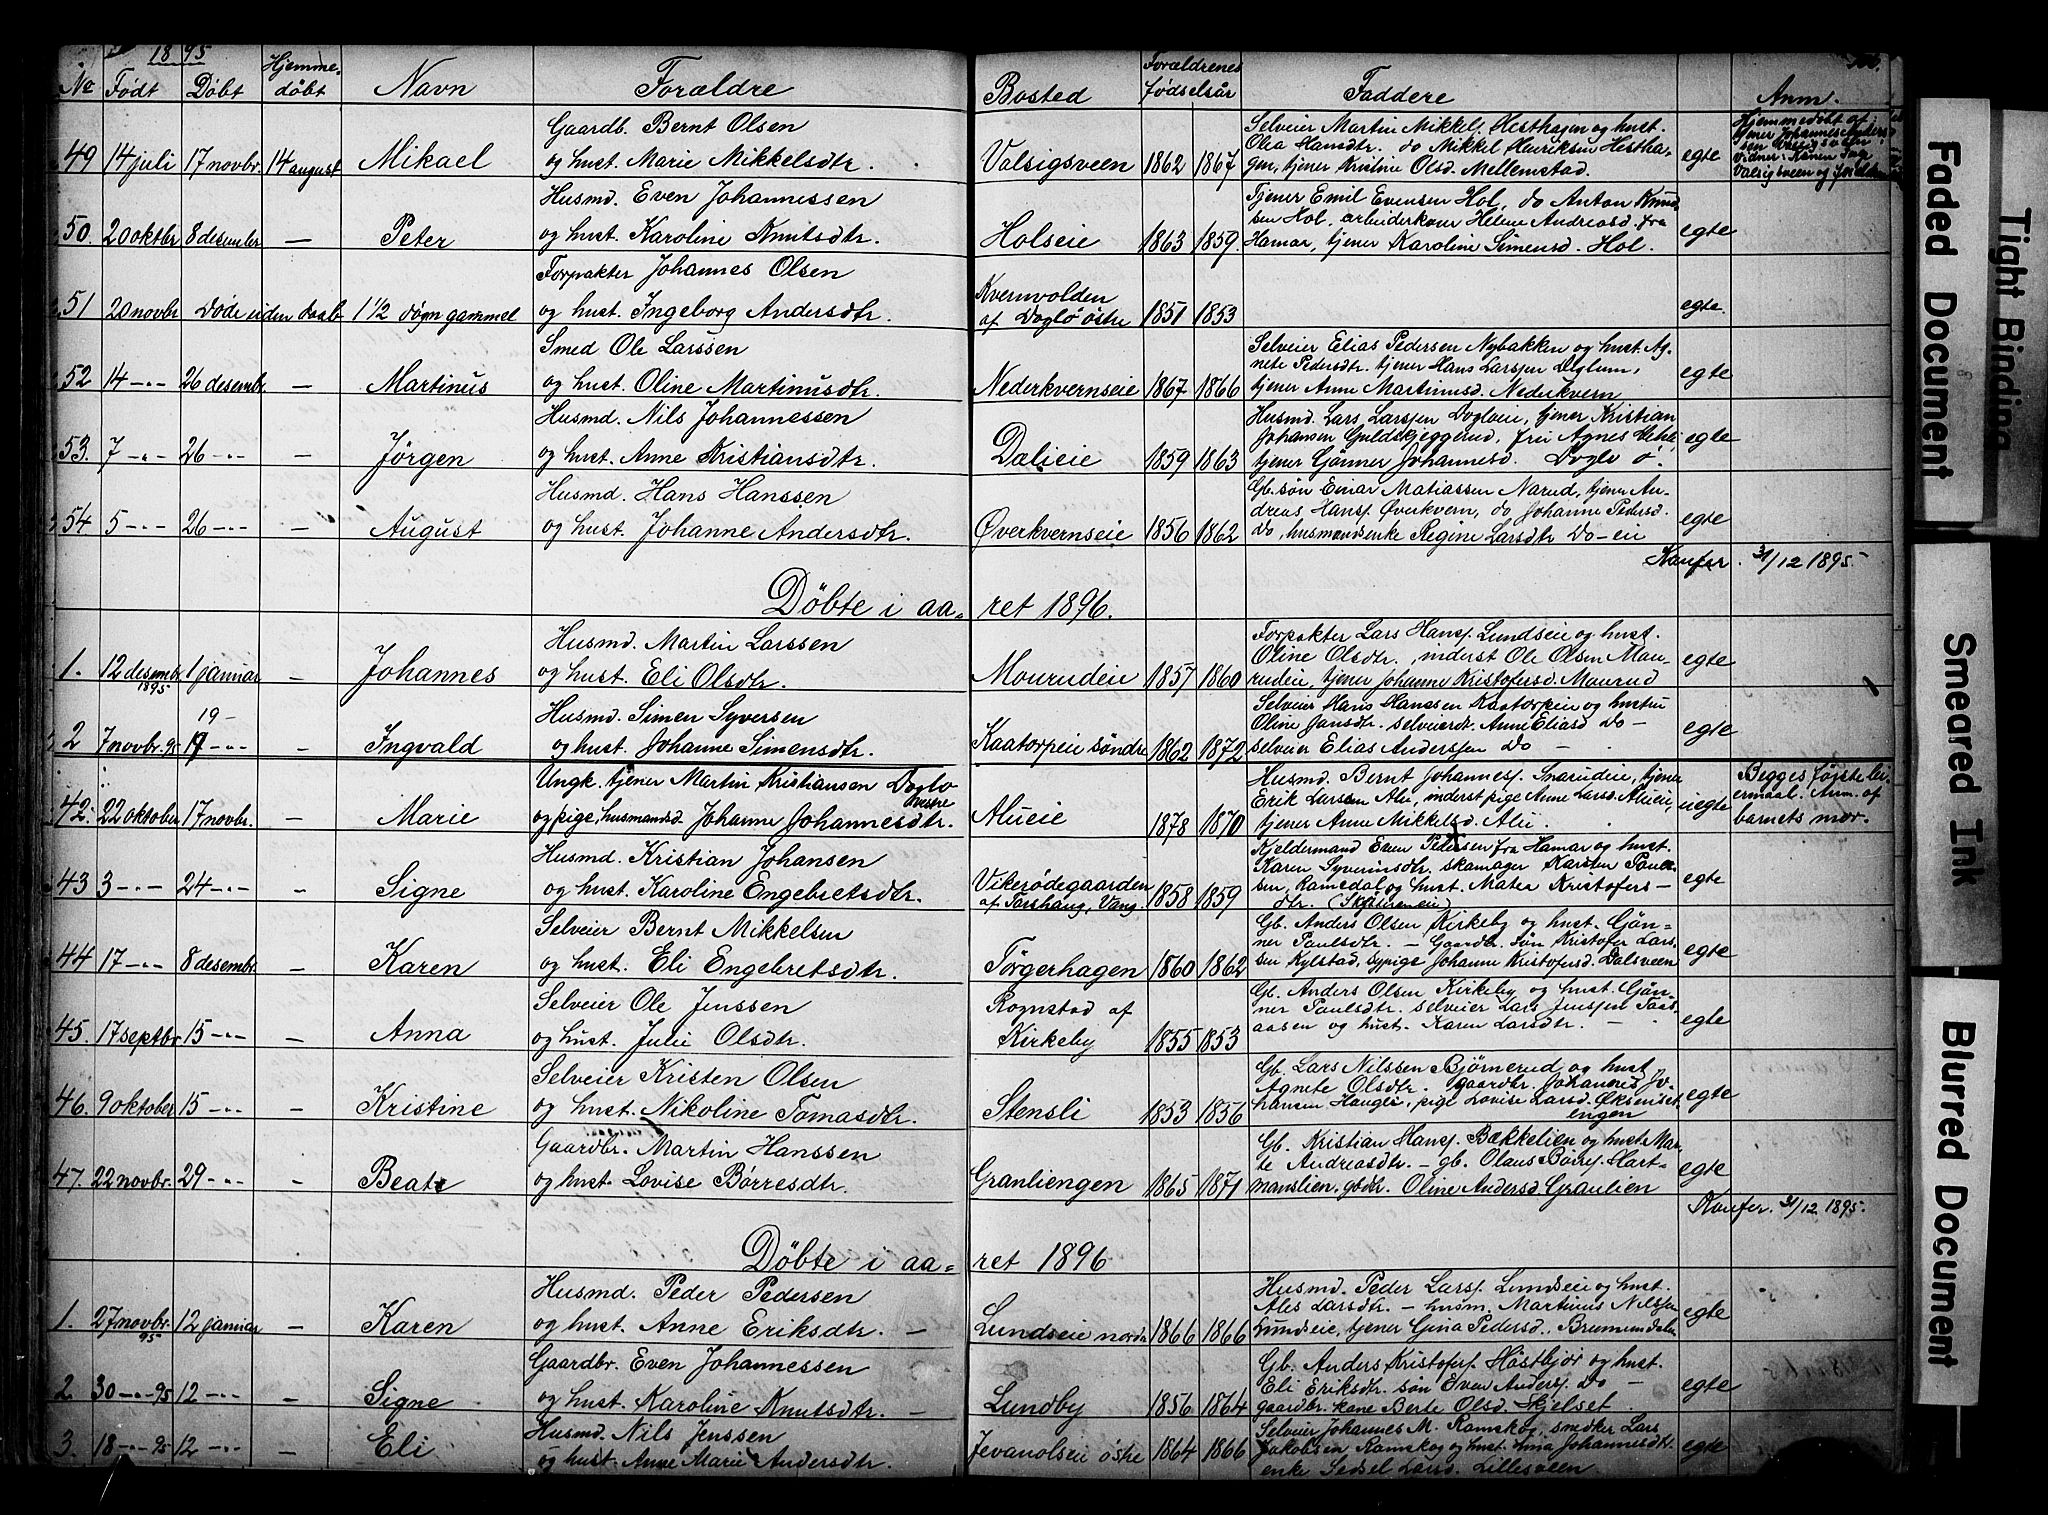 1895
No Født Døbt Hjemme-døbt Navn Forældre Bosted Forældrenes fødselsår Faddere Anm.
Gaardb. Bernt Olsen
49 14 juli 17 novbr. 14 august Mikael og hust. Marie Mikkelsdtr. Valsigsveen 1862 1867 egte
Selveier Martin Mikkels. Hesthagen og hust.
Olea Hansdtr. do Mikkel Henriksen Hestha-
gen, tjener Kristine Olsd. Mellemstad.
Hjemmedøbt af
Husmd. Even Johannessen
50. 20 oktbr 8 desember — Peter og hust. Karoline Knutsdtr. Holseie 1863 1859 egte
Tjener Emil Evensen Hol, do Anton Knud-
sen Hol, arbeiderkone Helene Andreasd. fra
Hamar, tjener Karoline Simensd. Hol.
Forpakter Johannes Olsen
51 20 novbr Døde uden daab 1 1/2 døgn gammel og hust. Ingeborg Andersdtr. Kvernvolden af Doglo østre 1851 1853 egte.
Smed Ole Larssen
52 14 -"- 26 desembr. — Martinus og hust. Oline Martinusdtr. Nederkvernseie 1867 1866 egte
Selveier Elias Pedersen Nybakken og hust. Ag-
nete Pedersdtr. tjener Hans Larssen Deglum,
tjener Anne Martinusd. Nederkvern
Husmd. Nils Johannessen
53. 7 -"- 26 -"- — Jørgen og hust. Anne Kristiansdtr. Dalieie 1859 1863 egte
Husmd. Lars Larssen Dogloeie, tjener Kristian
Johansen Guldskjeggerud, frü Agnes
tjener Gønner Johannesd. Doglo ø.
Husmd. Hans Hanssen
54. 5 -"- 26 -"- — August og hust. Johanne Andersdtr. Øverkvernseie 1856 1862 egte
Gb. søn Einar Matiassen Narud, tjener An-
dreas Hanss. Øverkvern, do Johanne Pedersd.
Do, husmandsenke Regine Larsdtr Do-eie
Konfer. 31/12 1895.
Døbte i aa-ret 1896.
Husmd. Martin Larssen
1. 12 desembr 1895 1 januar — Johannes og hust. Eli Olsdtr. Mourudeie 1857 1860 egte
Forpakter Lars Hanss. Lundseie og hust.
Oline Olsdtr., inderst Ole Olsen Mau-
rudeie, tjener Johanne Kristofersd. Maurud
Husmd. Simen Syversen
2 7 novbr. 95 19 -"- — Ingvald og hust. Johanne Simensdtr. Kaatorpeie søndre 1862 1872 egte
Selveier Hans Hanssen Kaatorpeie og hustru
Oline Jansdtr. selveierdt. Anne Eliasd Do —
selveier Elias Anderssen Do —
Ungk. tjener Martin Kristiansen Doglo vestre
42. 22 oktober 17 novbr. — Marie og pige, husmandsd. Johanne Johannesdtr. Alueie 1878 1870 uegte
Husmd. Bernt Johanness. Snarudeie, tjener
Erik Larssen Alu, inderst pige Anne Larsd. Alueie,
tjener Anne Mikkelsd. Alu.
Begges første lei-
ermaal. Anm. af
barnets mor.
Husmd. Kristian Johansen
43 3 -"- 24 -"- — Signe og hust. Karoline Engebretsdtr. Vikerødegaarden af Torshaug, Vang. 1858 1859 egte
Kjeldermand Even Pedersen fra Hamar og hust.
Karen Syverinsdtr. skomager Karsten Paul-
sen, Ramsdal og hust. Matea Kristofers-
dtr.
Selveier Bernt Mikkelsen
44 17 -"- 8 desembr. — Karen og hust. Eli Engebretsdtr. Torgerhagen 1860 1862 egte
Gb. Anders Olsen Kirkeby og hust. Gøn-
ner Paulsdtr. — Gaardbr. søn Kristofer Lars-
sen Kylstad, sypige Johanne Kristofersd. Dalsveen
Selveier Ole Jenssen
45. 17 septbr. 15 -"- — Anna og hust. Julie Olsdtr. Rognstad af Kirkeby 1855 1853 egte
Gb. Anders Olsen Kirkeby og hust. Gøn-
ner Paulsdtr. selveier Lars Jenssen Taas-
aasen og hust. Karen Larsdtr. —
Selveier Kristen Olsen
46. 9 oktober 15 -"- — Kristine og hust. Nikoline Tomasdtr. Stensli 1853 1856 egte
Gb. Lars Nilssen Bjørnerud og hust
Agnete Olsdtr. gaardbr. Johannes Jo-
hansen Hauger, pige Lovise Larsd. Øksenset-
engen
Gaardbr. Martin Hanssen
47. 22 novbr. 29 -"- — Beate og hust. Lovise Børresdtr. Granliengen 1865 1871 egte
Gb. Kristian Hanss. Bækkelien og hust. Mar-
te Andreasdtr. — gb. Olaus Børress. Hart-
manslien, gbdtr. Oline Andersd. Granlien
Konfer. 31/12 1895.
Døbte i aa-ret 1896
Husmd. Peder Pedersen
1. 27 novbr. 95 12 januar — Karen og hust. Anne Eriksdtr. — Lundseie nordre 1866 1866 egte
Husmd. Peder Larss. Lundseie og hust.
Ales Larsdtr. — husm. Martinus Nilssen
Lundseie, tjener Gina Pedersd. Brumunddalen
Gaardbr. Even Johannessen
2. 30 -"- 95 12 -"- — Signe og hust. Karoline Knutsdtr. — Lundby 1856 1864 egte
Gb. Anders Kristofers. Høstbjør og hust.
Eli Eriksdtr. søn Even Anderss. Do —
gaardbr. kone Berte Olsd. Skjelset
Husmd. Nils Jenssen
3. 18 -"- 95 12 -"- — Eli og hust. Anne Marie Andersdtr. Jevanolseie østre 1864 1866 egte
Selveier Johannes M. Ramskog, snedker Lars
Jakobsen Ramskog og hust. Johannesdtr.
enke Sedsel Larsd. Lillesveen
Faded Document
Tight Binding
Smeared Ink
Blurred Document